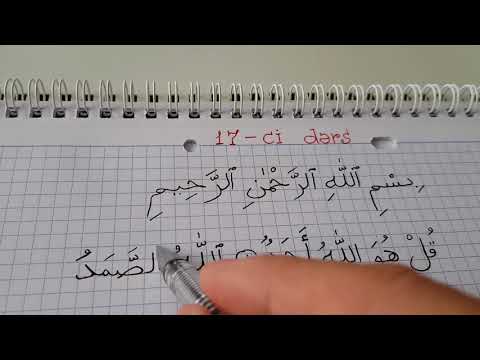 17-ci dərs
بِسْمِ ٱللَّٰهِ ٱلرَّحْمَٰنِ ٱلرَّحِيمِ
قُلْ هُوَ اللَّٰهُ أَحَدٌ ٱللَّٰهُ ٱلصَّمَدُ